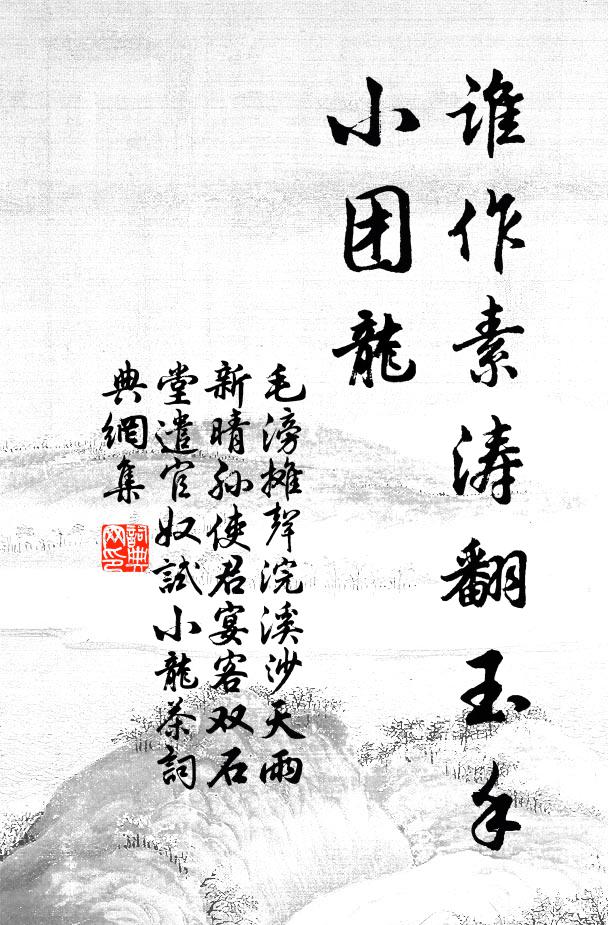 谁作素涛翻玉手
小团龍
毛滂摊聲浣溪沙天雨
新晴孙使君宴客双石
堂遣官奴試小龍茶詞
典網集
詞典
网印